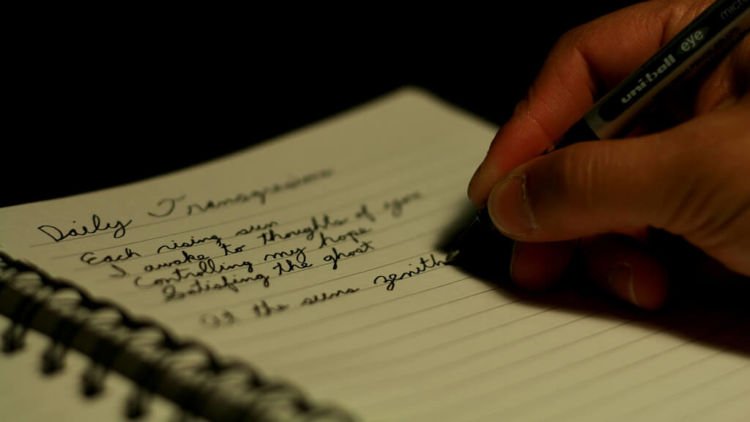 Daily Transgressions
Each rising sun
I awake to thoughts of you
Controlling my hope
Satisfying the ghost
At the suns zenith
uni-ball eye